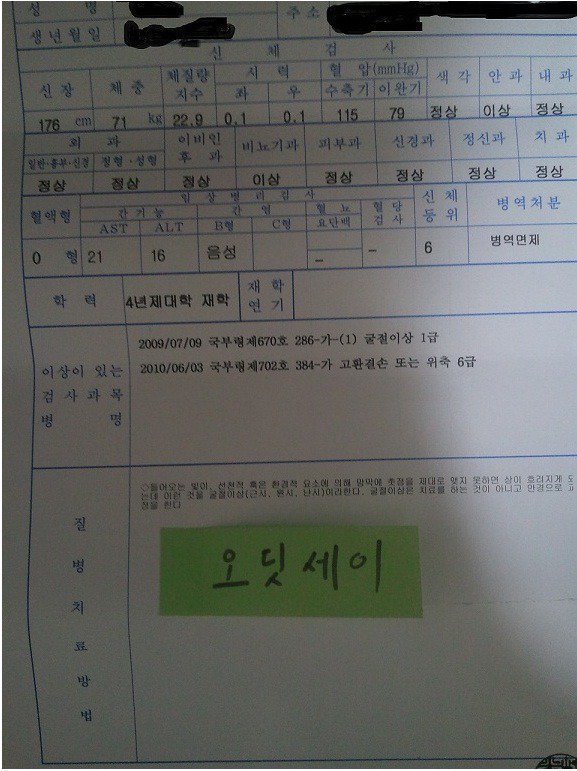 성 명
주소
생년월일
신 체 검 사
신장 체중 체질량지수 시력 좌 우 혈압(mmHg) 수축기 이완기 색각 안과 내과
176 cm 71 kg 22.9 0.1 0.1 115 79 정상 이상 정상
외 과 일반·흉부·신경 정형·성형 이비인후과 비뇨기과 피부과 신경과 정신과 치과
정상 정상 정상 이상 정상 정상 정상 정상
임 상 병 리 검 사
혈액형 간기능 AST ALT 간염 B형 C형 혈뇨 요단백 혈당검사 신체등위 병역처분
O 형 21 16 음성 – – 6 병역면제
학 력 4년제대학 재학 재학연기
이상이 있는 검사과목 병 명
2009/07/09 국부령제670호 286-가-(1) 굴절이상 1급
2010/06/03 국부령제702호 384-가 고환결손 또는 위축 6급
질병치료방법
○들어오는 빛이, 선천적 혹은 환경적 요소에 의해 망막에 초점을 제대로 맺지 못하면 상이 흐려지게 되
는데 이런 것을 굴절이상(근시, 원시, 난시)이라한다. 굴절이상은 치료를 하는 것이 아니고 안경으로 교
정을 한다
오딧세이